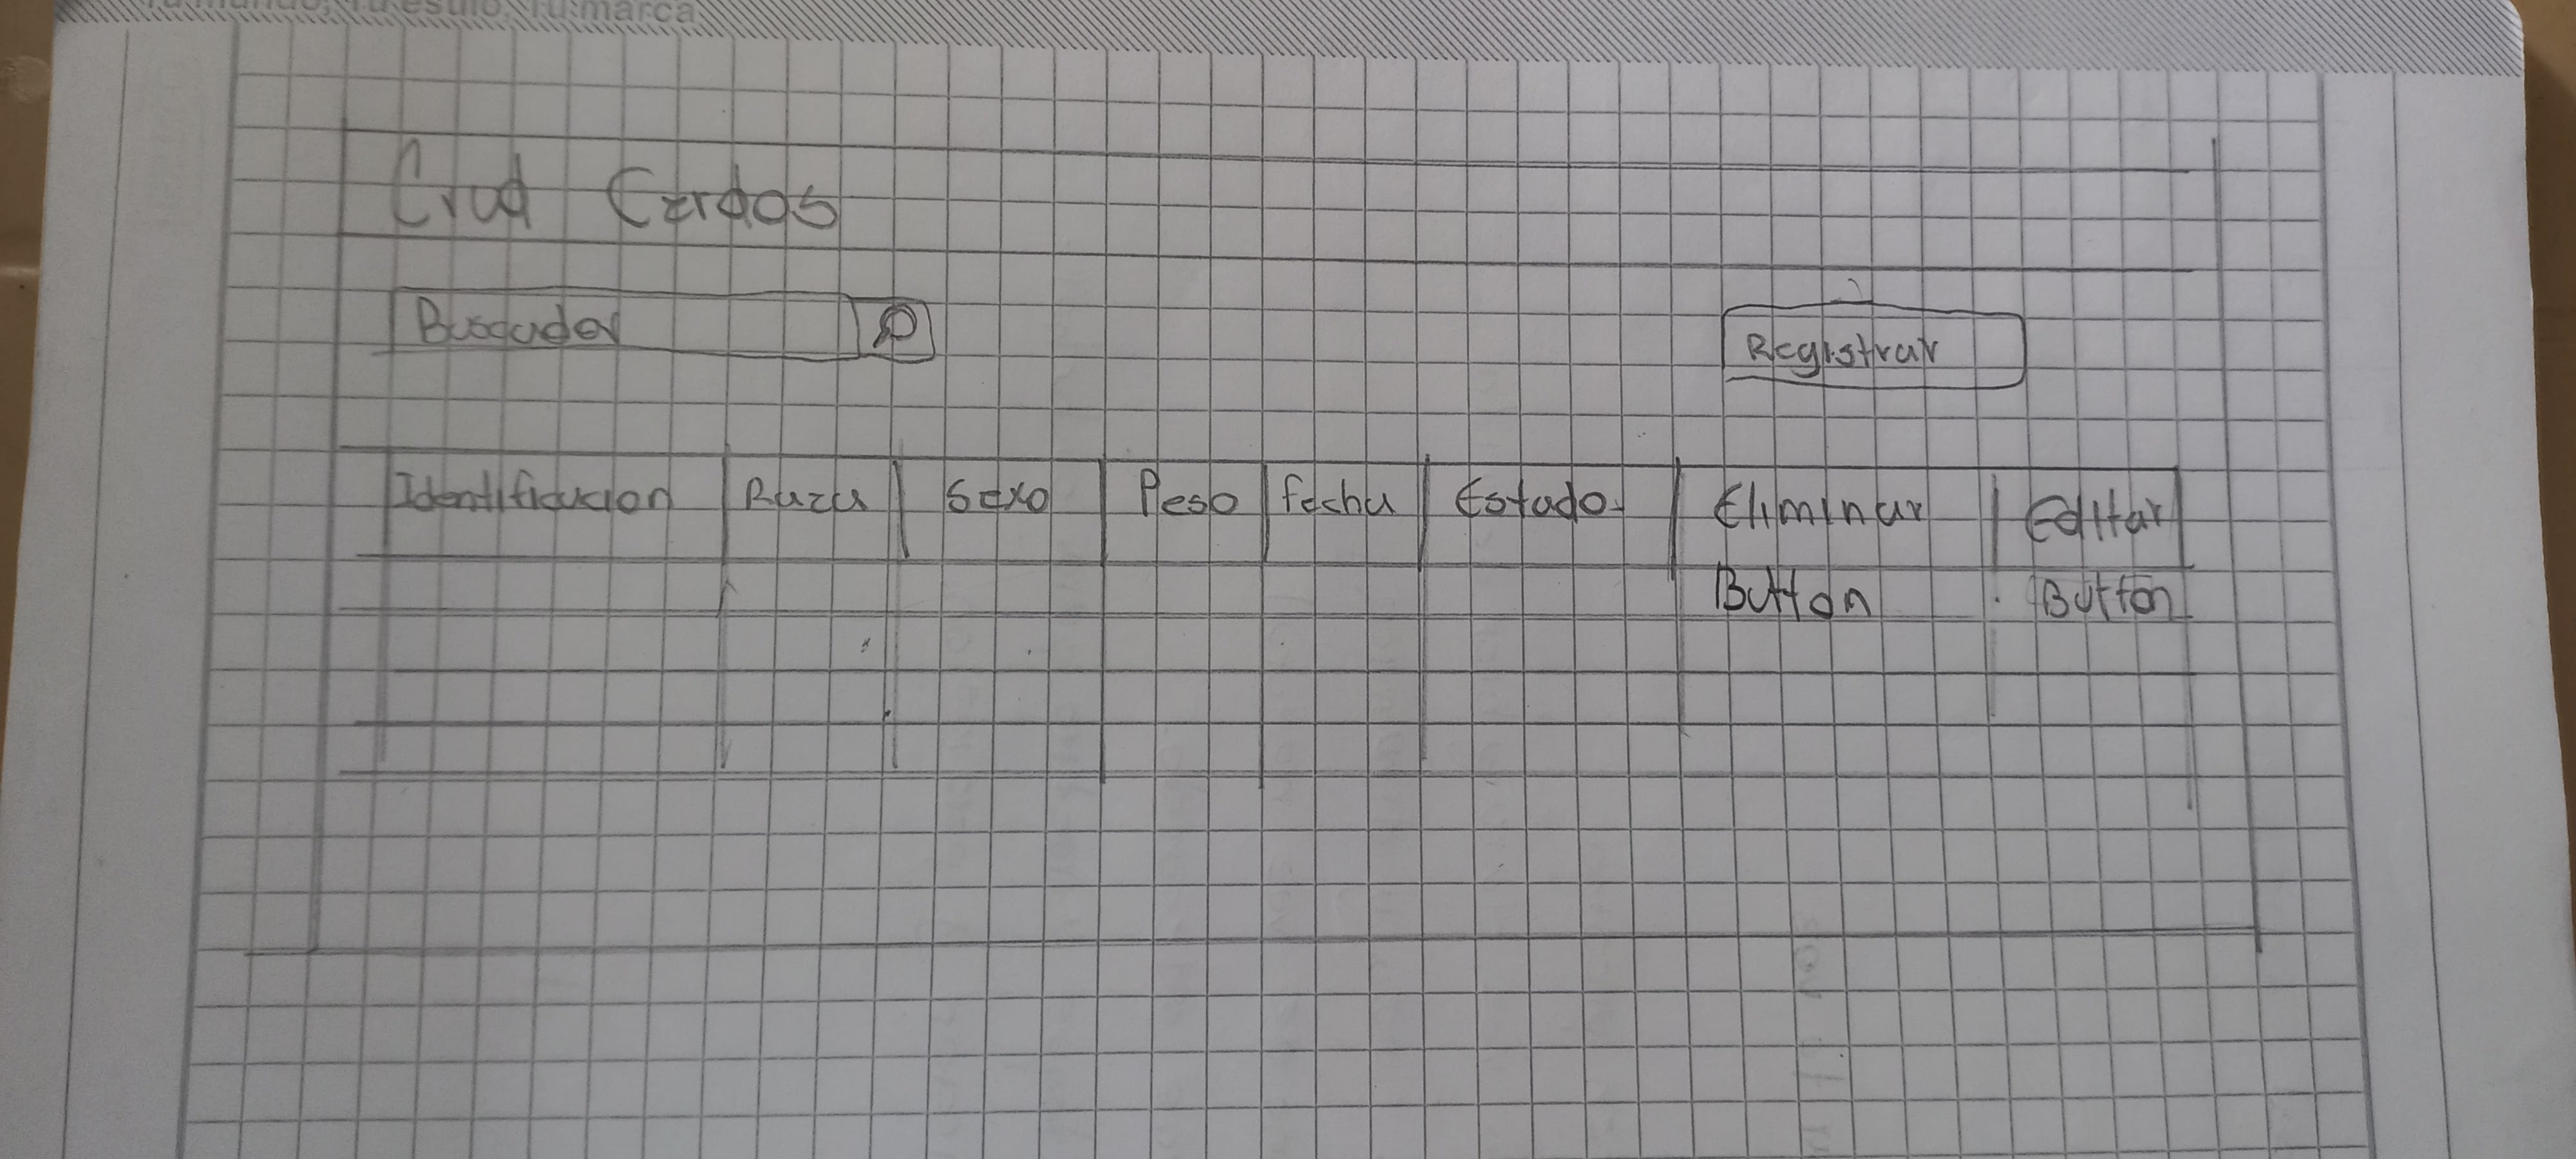 Tu mundo, Tu estilo, Tu marca.
Crud Cerdos
Buscador
Registrar
Identificacion Raza Sexo Peso fecha Estado Eliminar Editar
Button Button